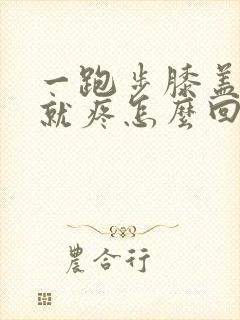 一跑步膝盖
就疼怎麼回
農合行